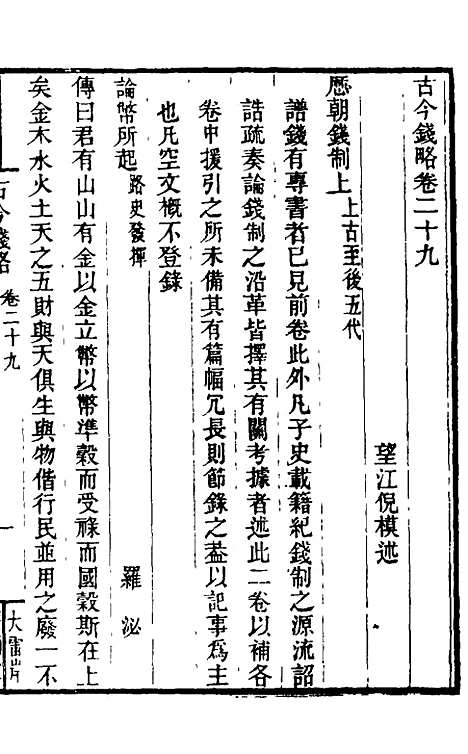 古今錢略卷二十九
望江倪模述
歷朝錢制上 上古至後五代
譜錢有專書者已見前卷此外凡子史載籍紀錢制之源流詔
誥疏奏論錢制之沿革皆擇其有關考據者述此二卷以補各
卷中援引之所未備其有篇幅冗長則節錄之蓋以記事爲主
也凡空文槪不登錄
論幣所起 路史發揮 羅泌
傳曰君有山山有金以金立幣以幣準穀而受祿而國穀斯在上
矣金木水火土天之五財與天俱生與物偕行民並用之廢一不
古今錢略 卷二十九 一